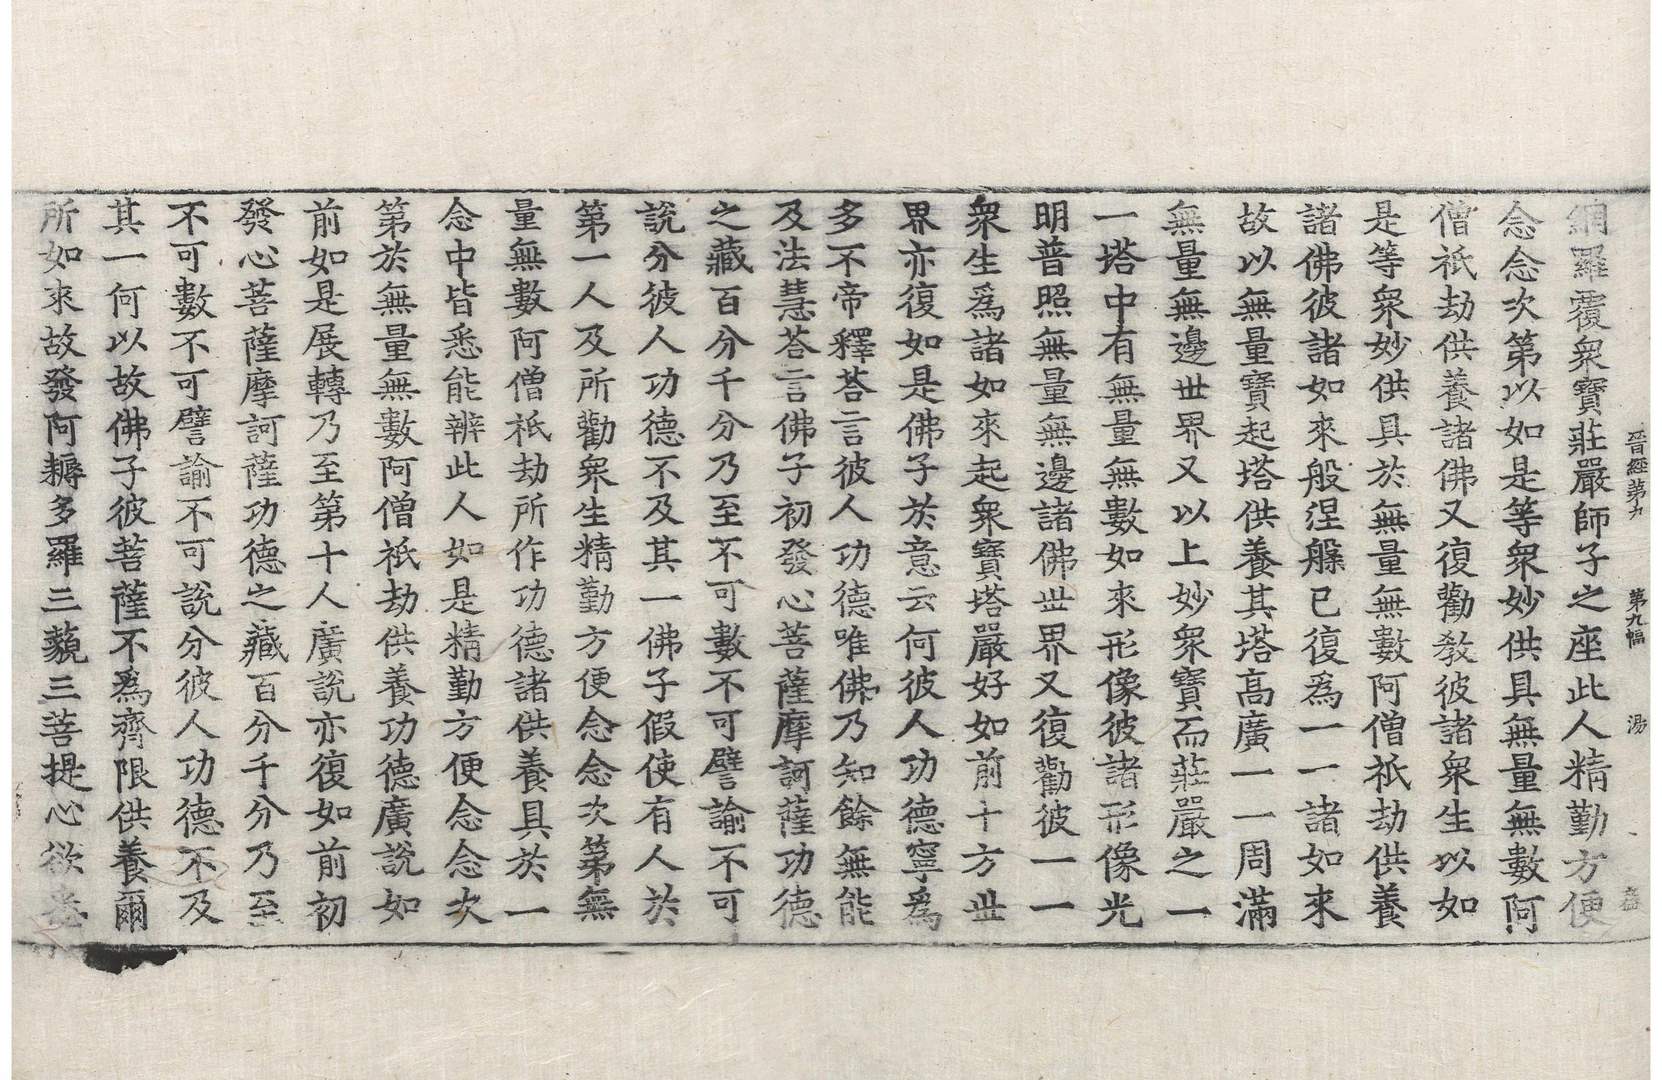 晉經第九 第九幅 湯
網羅覆衆寶莊嚴師子之座此人精勤方便
念念次第以如是等衆妙供具無量無數阿
僧祇劫供養諸佛又復勸教彼諸衆生以如
是等衆妙供具於無量無數阿僧祇劫供養
諸佛彼諸如來般涅槃已復爲一一諸如來
故以無量寶起塔供養其塔高廣一一周滿
無量無邊世界又以上妙衆寶而莊嚴之一
一塔中有無量無數如來形像彼諸形像光
明普照無量無邊諸佛世界又復勸彼一一
衆生爲諸如來起衆寶塔嚴好如前十方世
界亦復如是佛子於意云何彼人功德寧爲
多不帝釋荅言彼人功德唯佛乃知餘無能
及法慧荅言佛子初發心菩薩摩訶薩功德
之藏百分千分乃至不可數不可譬諭不可
說分彼人功德不及其一佛子假使有人於
第一人及所勸衆生精勤方便念念次第無
量無數阿僧祇劫所作功德諸供養具於一
念中皆悉能辨此人如是精勤方便念念次
第於無量無數阿僧祇劫供養功德廣說如
前如是展轉乃至第十人廣說亦復如前初
發心菩薩摩訶薩功德之藏百分千分乃至
不可數不可譬諭不可說分彼人功德不及
其一何以故佛子彼菩薩不爲齊限供養爾
所如來故發阿耨多羅三藐三菩提心欲悉